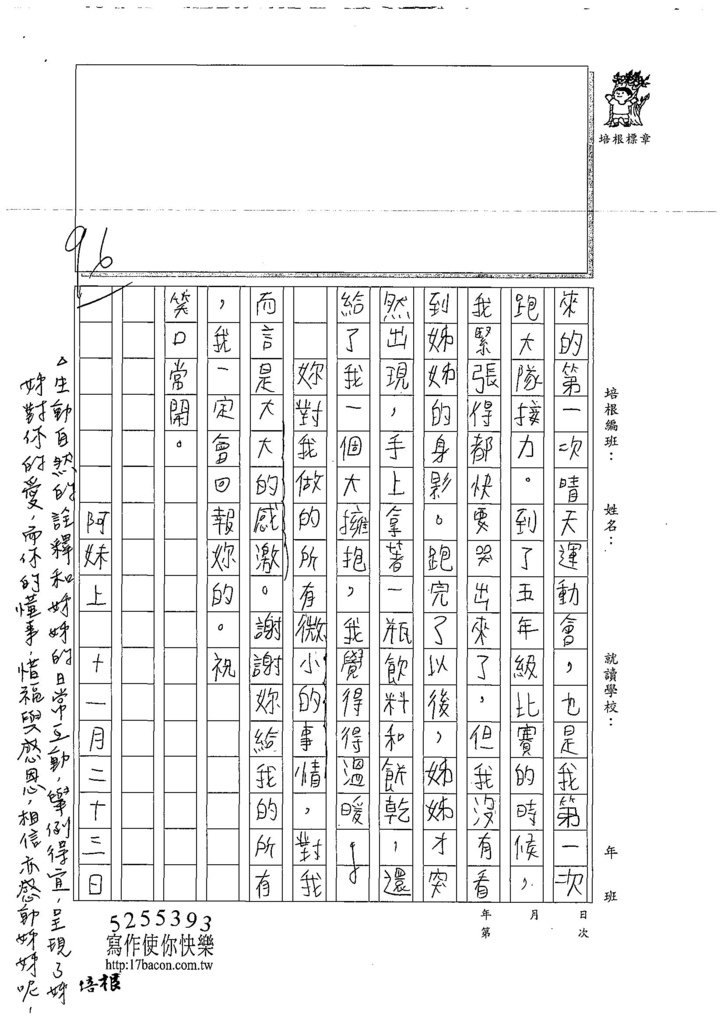 培根標章
培根編班：
姓名：
就讀學校：
年 班
日 次
月
年 第
96
來的第一次晴天運動會，也是我第一次
跑大隊接力。到了五年級比賽的時候，
我緊張得都快要哭出來了，但我沒有看
到姊姊的身影。跑完了以後，姊姊才突
然出現，手上拿著一瓶飲料和餅乾，還
給了我一個大擁抱，我覺得得溫暖！
妳對我做的所有微小的事情，對我
而言是大大的感激。謝謝妳給我的所有
，我一定會回報妳的。祝
笑口常開。
阿妹上 十一月二十三日
△生動自然的詮釋和姊姊的日常互動，舉例得宜，呈現了姊
姊對你的愛，而你的懂事，惜福與感恩，相信亦感動姊姊呢！
培根
5255393
寫作使你快樂
http:17bacon.com.tw